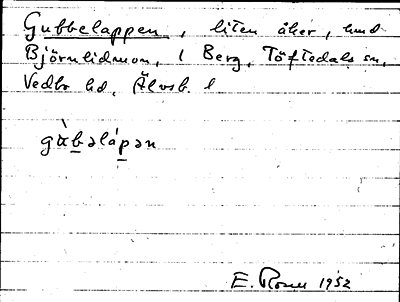 Gubbelappen, liten åker, hmd
Björnlidmon, i Berg, Töftedals sn,
Vedbo hd, Älvsb. l
gὰbəlápən
E. 1952